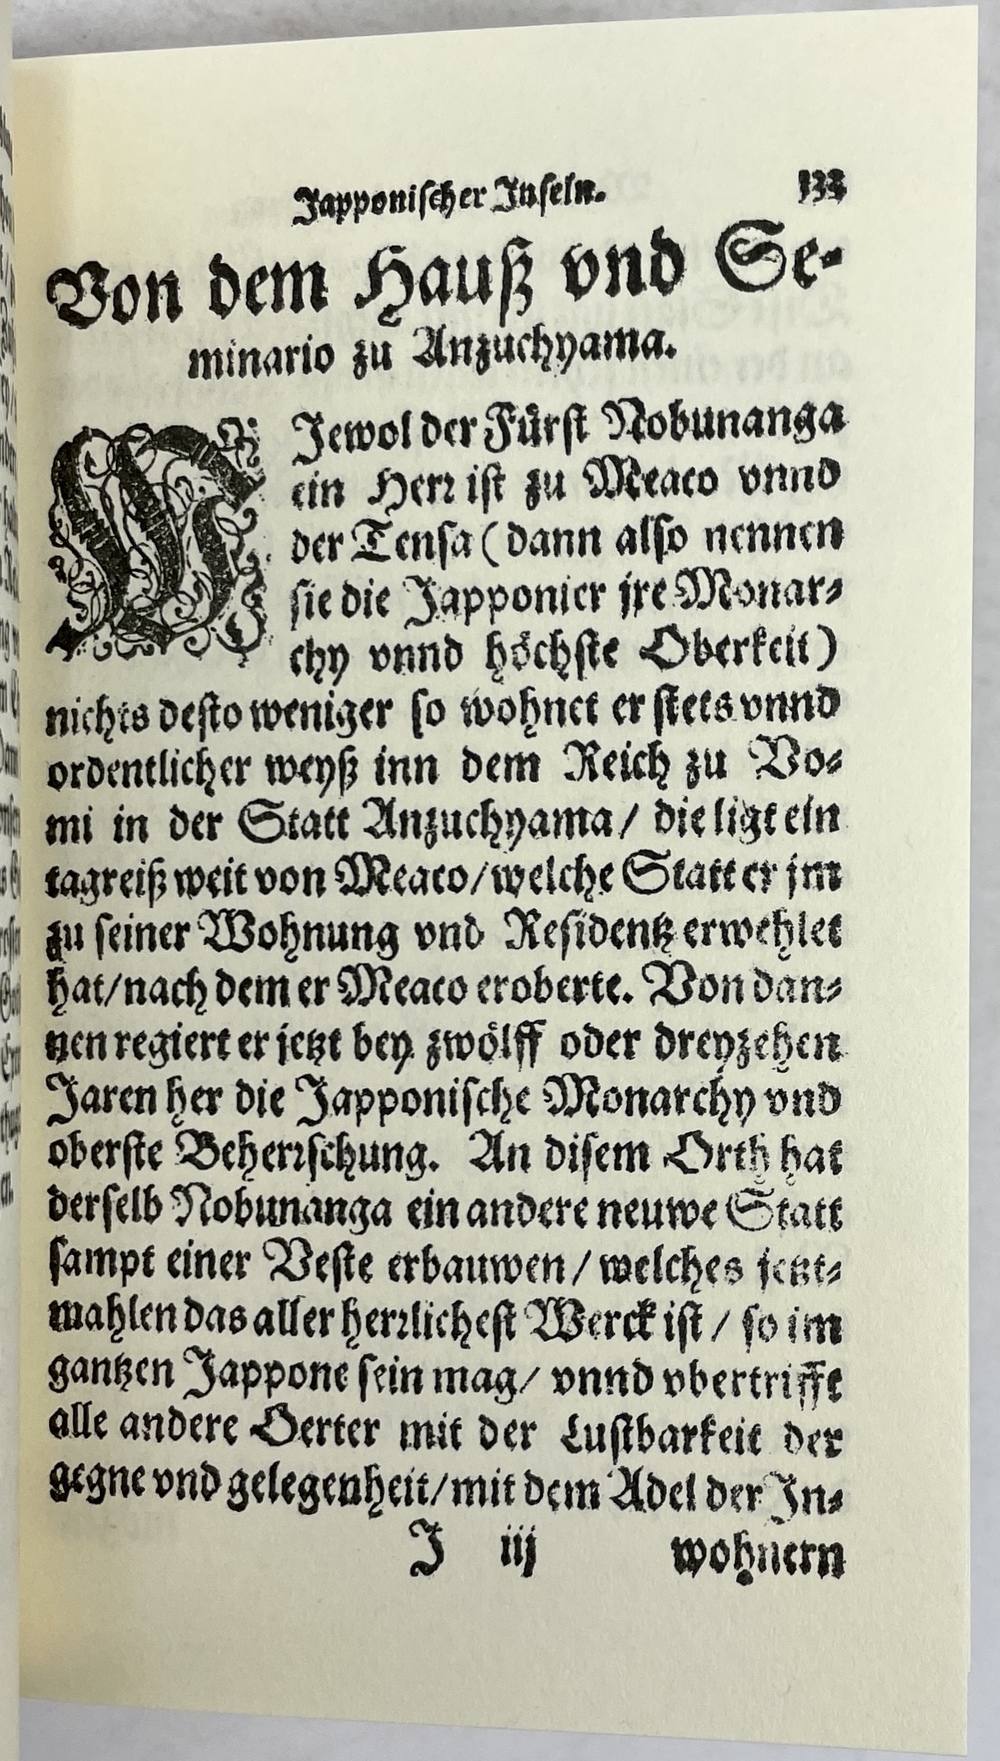 Japponischer Inseln. 133
Von dem Hauß vnd Se-
minario zu Anzuchyama.
WJewol der Fürst Nobunanga
ein Herr ist zu Meaco vnnd
der Tensa (dann also nennen
sie die Japponier jre Monar-
chy vnnd höchste Oberkeit)
nichts desto weniger so wohnet er stets vnnd
ordentlicher weyß inn dem Reich zu Vo-
mi in der Statt Anzuchyama / die ligt ein
tagreiß weit von Meaco/welche Statt er jm
zu seiner Wohnung vnd Residentz erwehlet
hat/nach dem er Meaco eroberte. Von dan-
nen regiert er jetzt bey zwölff oder dreyzehen
Jaren her die Japponische Monarchy vnd
oberste Beherrschung. An disem Orth hat
derselb Nobunanga ein andere neuwe Statt
sampt einer Veste erbauwen / welches jetzt-
mahlen das aller herrlichest Werck ist / so im
gantzen Jappone sein mag/ vnnd vbertrifft
alle andere Oerter mit der Lustbarkeit der
gegne vnd gelegenheit/mit dem Adel der In-
J iij wohnern